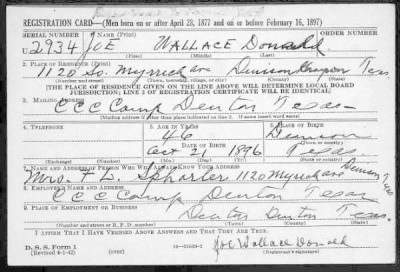 REGISTRATION CARD—(Men born on or after April 28, 1877 and on or before February 16, 1897)
SERIAL NUMBER 1. NAME (Print)
U2934 JOE WALLACE Donald
2. PLACE OF RESIDENCE (Print)
1120 So. Myrick Ave Denison Grayson Tex.
(Number and street) (Town, township, village, or city) (County) (State)
[THE PLACE OF RESIDENCE GIVEN ON THE LINE ABOVE WILL DETERMINE LOCAL BOARD
JURISDICTION; LINE 2 OF REGISTRATION CERTIFICATE WILL BE IDENTICAL]
3. MAILING ADDRESS
CCC Camp Denton Texas
[Mailing address if other than place indicated on line 2. If same insert word same]
4. TELEPHONE 5. AGE IN YEARS 6. PLACE OF BIRTH
46 Denison
DATE OF BIRTH (Town or county)
Oct 21 1896 Texas
(Exchange) (Number) (Mo.) (Day) (Yr.) (State or country)
7. NAME AND ADDRESS OF PERSON WHO WILL ALWAYS KNOW YOUR ADDRESS
Mrs. 1120 Myrick Ave Denison Tex
8. EMPLOYER'S NAME AND ADDRESS
CCC Camp Denton Texas
9. PLACE OF EMPLOYMENT OR BUSINESS
Denton Denton Tex.
(Number and street or R. F. D. number) (Town) (County) (State)
I AFFIRM THAT I HAVE VERIFIED ABOVE ANSWERS AND THAT THEY ARE TRUE.
D. S. S. Form 1
(Revised 4-1-42) (over)
Joe Wallace Donald
(Registrant's signature)